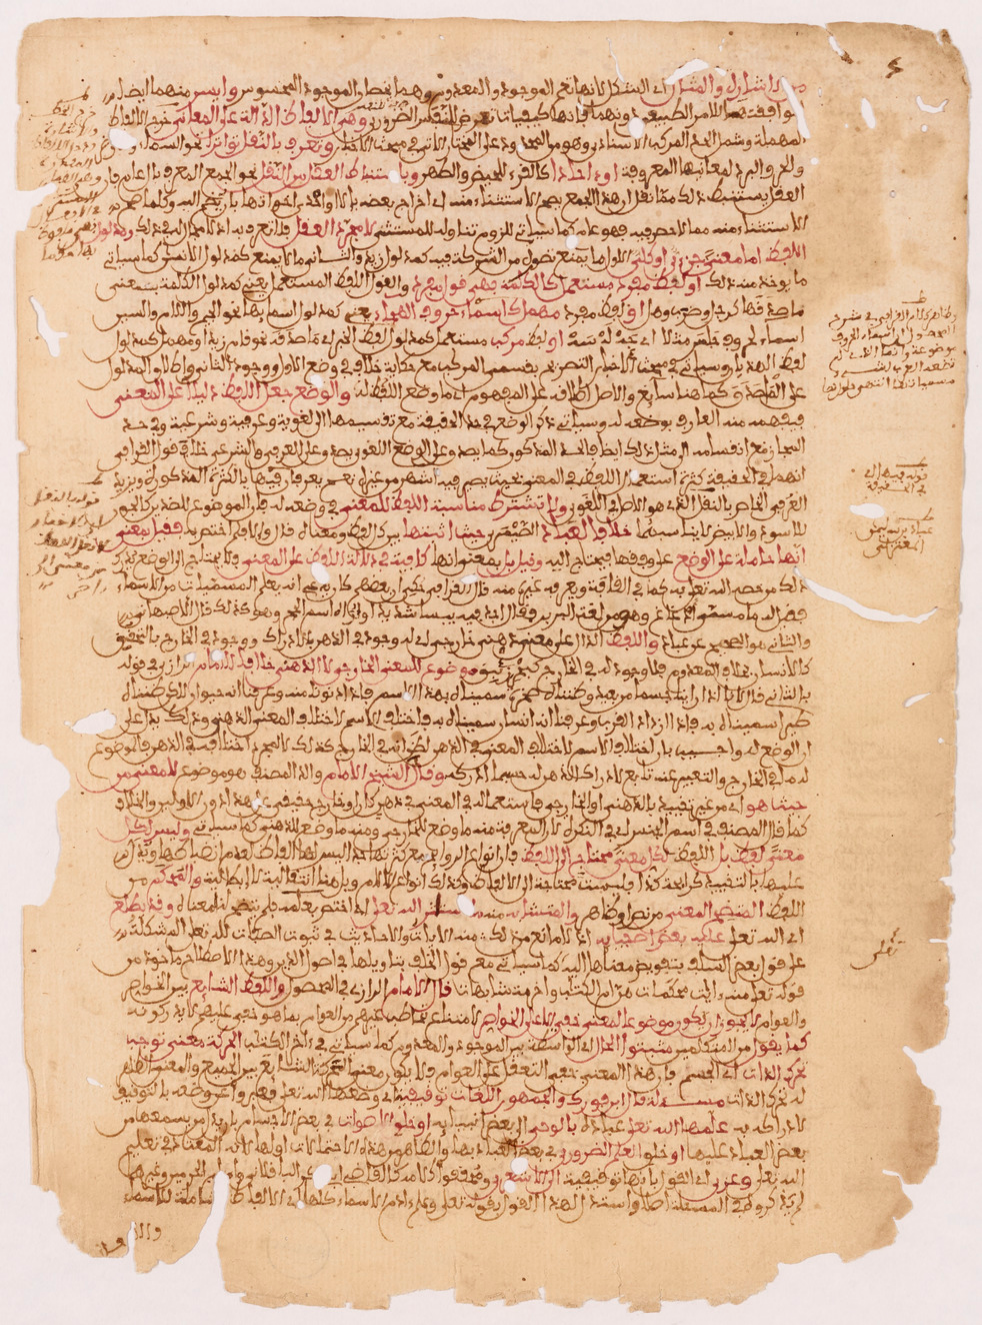 من الإشارة والمثال أي الشكل لأنها تعم الموجود والمعدوم وهما يخصان الموجود المحسوس وأيسر منهما أيضا
لموافقتها للأمر الطبيعي دونهما فإنها كيفيات تعرض للنفس الضروري وهي الألفاظ الدالة على المعاني خرج الألفاظ
المهملة وشمل الحد المركب الإسنادي وهو من المحدود على المختار الآتي في مبحث الأخبار وتعرف بالنقل تواترا نحو السماء والأرض
والحر والبرد لمعانيها المعروفة أو آحادا كالقرء للحيض والطهر وباستنباط العقل من النقل نحو الجمع المعرف بأل عام فإن
العقل يستنبط ذلك مما نقل أن هذا الجمع يصح الاستثناء منه أي إخراج بعضه بإلا أو إحدى أخواتها بأن يضم إليه وكل ما صح
الاستثناء منه مما لا حصر فيه فهو عام كما سيأتي للزوم تناوله للمستثنى لا مجرد العقل فلا تعرف به إذ لا مجال له في ذلك ومدلول
اللفظ إما معنى جزئي أو كلي الأول ما يمنع تصوره من الشركة فيه كمدلول زيد والثاني ما لا يمنع كمدلول الإنسان كما سيأتي
ما يؤخذ منه ذلك أو لفظ مفرد مستعمل كالكلمة فهي قول مفرد والقول اللفظ المستعمل يعني كمدلول الكلمة بمعنى
ماصدقها كرجل وضرب وهل أو لفظ مفرد مهمل كأسماء حروف الهجاء يعني كمدلول أسمائها نحو الجيم واللام والسين
أسماء لحروف جلس مثلا أي جه له سه أو لفظ مركب مستعمل كمدلول لفظ الخبر أي ماصدقه نحو قام زيد أو مهمل كمدلول
لفظ الهذيان وسيأتي في مبحث الأخبار التصريح بقسمي المركب مع حكاية خلاف في وضع الأول ووجود الثاني وإطلاق المدلول
على الماصدق كما هنا سائغ والأصل إطلاقه على المفهوم أي ما وضع اللفظ له والوضع جعل اللفظ دليلا على المعنى
فيفهمه منه العارف بوضعه له وسيأتي ذكر الوضع في حد الحقيقة مع تقسيمها إلى لغوية وعرفية وشرعية وفي حد
المجاز مع انقسامه إلى مثل ذلك أيضا فالحد المذكور كما يصدق على الوضع اللغوي يصدق على العرفي والشرعي خلاف قول القرافي
إنهما في الحقيقة كثرة استعمال اللفظ في المعنى بحيث يصير فيه أشهر من غيره نعم يعرفان فيها بالكثرة المذكورة ويزيد
العرفي الخاص بالنقل الذي هو الأصل في اللغوي ولا يشترط مناسبة اللفظ للمعنى في وضعه له فإن الموضوع للضدين كالجون
للأسود والأبيض لا يناسبهما خلافا لعباد الصيمري حيث أثبتها بين كل لفظ ومعناه قال وإلا فلم اختص به فقيل بمعنى
أنها حاملة على الوضع على وفقها فيحتاج إليه وقيل بل بمعنى أنها كافية في دلالة اللفظ على المعنى فلا يحتاج إلى الوضع يدرك
ذلك من خصه الله تعالى به كما في القافة ويعرفه غيره منه قال القرافي حكي أن بعضهم كان يدعي أنه يعلم المسميات من الأسماء
فقيل له ما مسمى آذغاغ وهو من لغة البربر فقال أجد فيه يبسا شديدا وأراه اسم الحجر وهو كذلك قال الأصبهاني
والثاني هو الصحيح عن عباد واللفظ الدال على معنى ذهني خارجي أي له وجود في الذهن بالإدراك ووجود في الخارج بالتحقق
كالإنسان بخلاف المعدوم فلا وجود له في الخارج كبحر زئبق موضوع للمعنى الخارجي لا الذهني خلافا للإمام الرازي في قوله
بالثاني قال لأنا إذا رأينا جسما من بعيد وظنناه صخرة سميناه بهذا الاسم فإذا دنونا منه وعرفنا أنه حيوان لكن ظنناه
طيرا سميناه به فإذا ازداد القرب وعرفنا أنه إنسان سميناه به فاختلف الاسم لاختلاف المعنى الذهني وذلك يدل على
أن الوضع له وأجيب بأن اختلاف الاسم لاختلاف المعنى في الذهن لظن أنه في الخارج كذلك لا لمجرد اختلافه في الذهن فالموضوع
له ما في الخارج والتعبير عنه تابع لإدراك الذهن له حسبما أدركه وقال الشيخ الإمام والد المصنف هو موضوع للمعنى من
حيث هو أي من غير تقييد بالذهني أو الخارجي فاستعماله في المعنى في ذهن كان أو خارج حقيقي على هذا دون الأولين والخلاف
كما قال المصنف في اسم الجنس أي في النكرة لأن المعرفة منه ما وضع للخارجي ومنه ما وضع للذهني كما سيأتي وليس لكل
معنى لفظ بل اللفظ لكل معنى محتاج إلى اللفظ فإن أنواع الروائح مع كثرتها جدا ليس لها ألفاظ لعدم انضباطها ويدل
عليها بالتقييد كرائحة كذا فليست محتاجة إلى الألفاظ وكذلك أنواع الآلام وبل هنا انتقالية لا إبطالية والمحكم من
اللفظ المتضح المعنى من نص أو ظاهر والمتشابه منه ما استأثر الله تعالى أي اختص بعلمه فلم يتضح لنا معناه وقد يطلع
أي الله تعالى عليه بعض أصفيائه إذ لا مانع من ذلك ومنه الآيات والأحاديث في ثبوت الصفات لله تعالى المشكلة
على قول بعض السلف بتفويض معناها إليه كما سيأتي مع قول الخلف بتأويلها في أصول الدين وهذا الاصطلاح مأخوذ من
قوله تعالى منه آيات محكمات هن أم الكتاب وأخر متشابهات قال الإمام الرازي في المحصول واللفظ الشائع بين الخواص
والعوام لا يجوز أن يكون موضوعا لمعنى خفي إلا على الخواص لامتناع تخاطب غيرهم من العوام بما هو خفي عليهم لا يدركونه
كما يقول من المتكلمين مثبتو الحال أي الواسطة بين الموجود والمعدوم كما سيأتي في آخر الكتاب الحركة معنى توجب
تحرك الذات أي الجسم فإن هذا المعنى خفي التعقل على العوام فلا يكون معنى الحركة الشائع بين الجميع والمعنى الظاهر
له تحرك الذات مسألة قال ابن فورك والجمهور اللغات توقيفية أي وضعها الله تعالى فعبروا عن وضعه بالتوقيف
لإدراكه به علمها الله تعالى عباده بالوحي إلى بعض أنبيائه أو خلق الأصوات في بعض الأجسام بأن تدل من يسمعها من
بعض العباد عليها أو خلق العلم الضروري في بعض العباد بها والظاهر من هذه الاحتمالات أولها لأنه المعتاد في تعليم
الله تعالى وعزي أي القول بأنها توقيفية إلى الأشعري ومحققو كلامه كالقاضي أبي بكر الباقلاني وإمام الحرمين وغيرهما
لم يذكروه في المسألة أصلا واستدل لهذا القول بقوله تعالى وعلم آدم الأسماء كلها أي الألفاظ الشاملة للأسماء